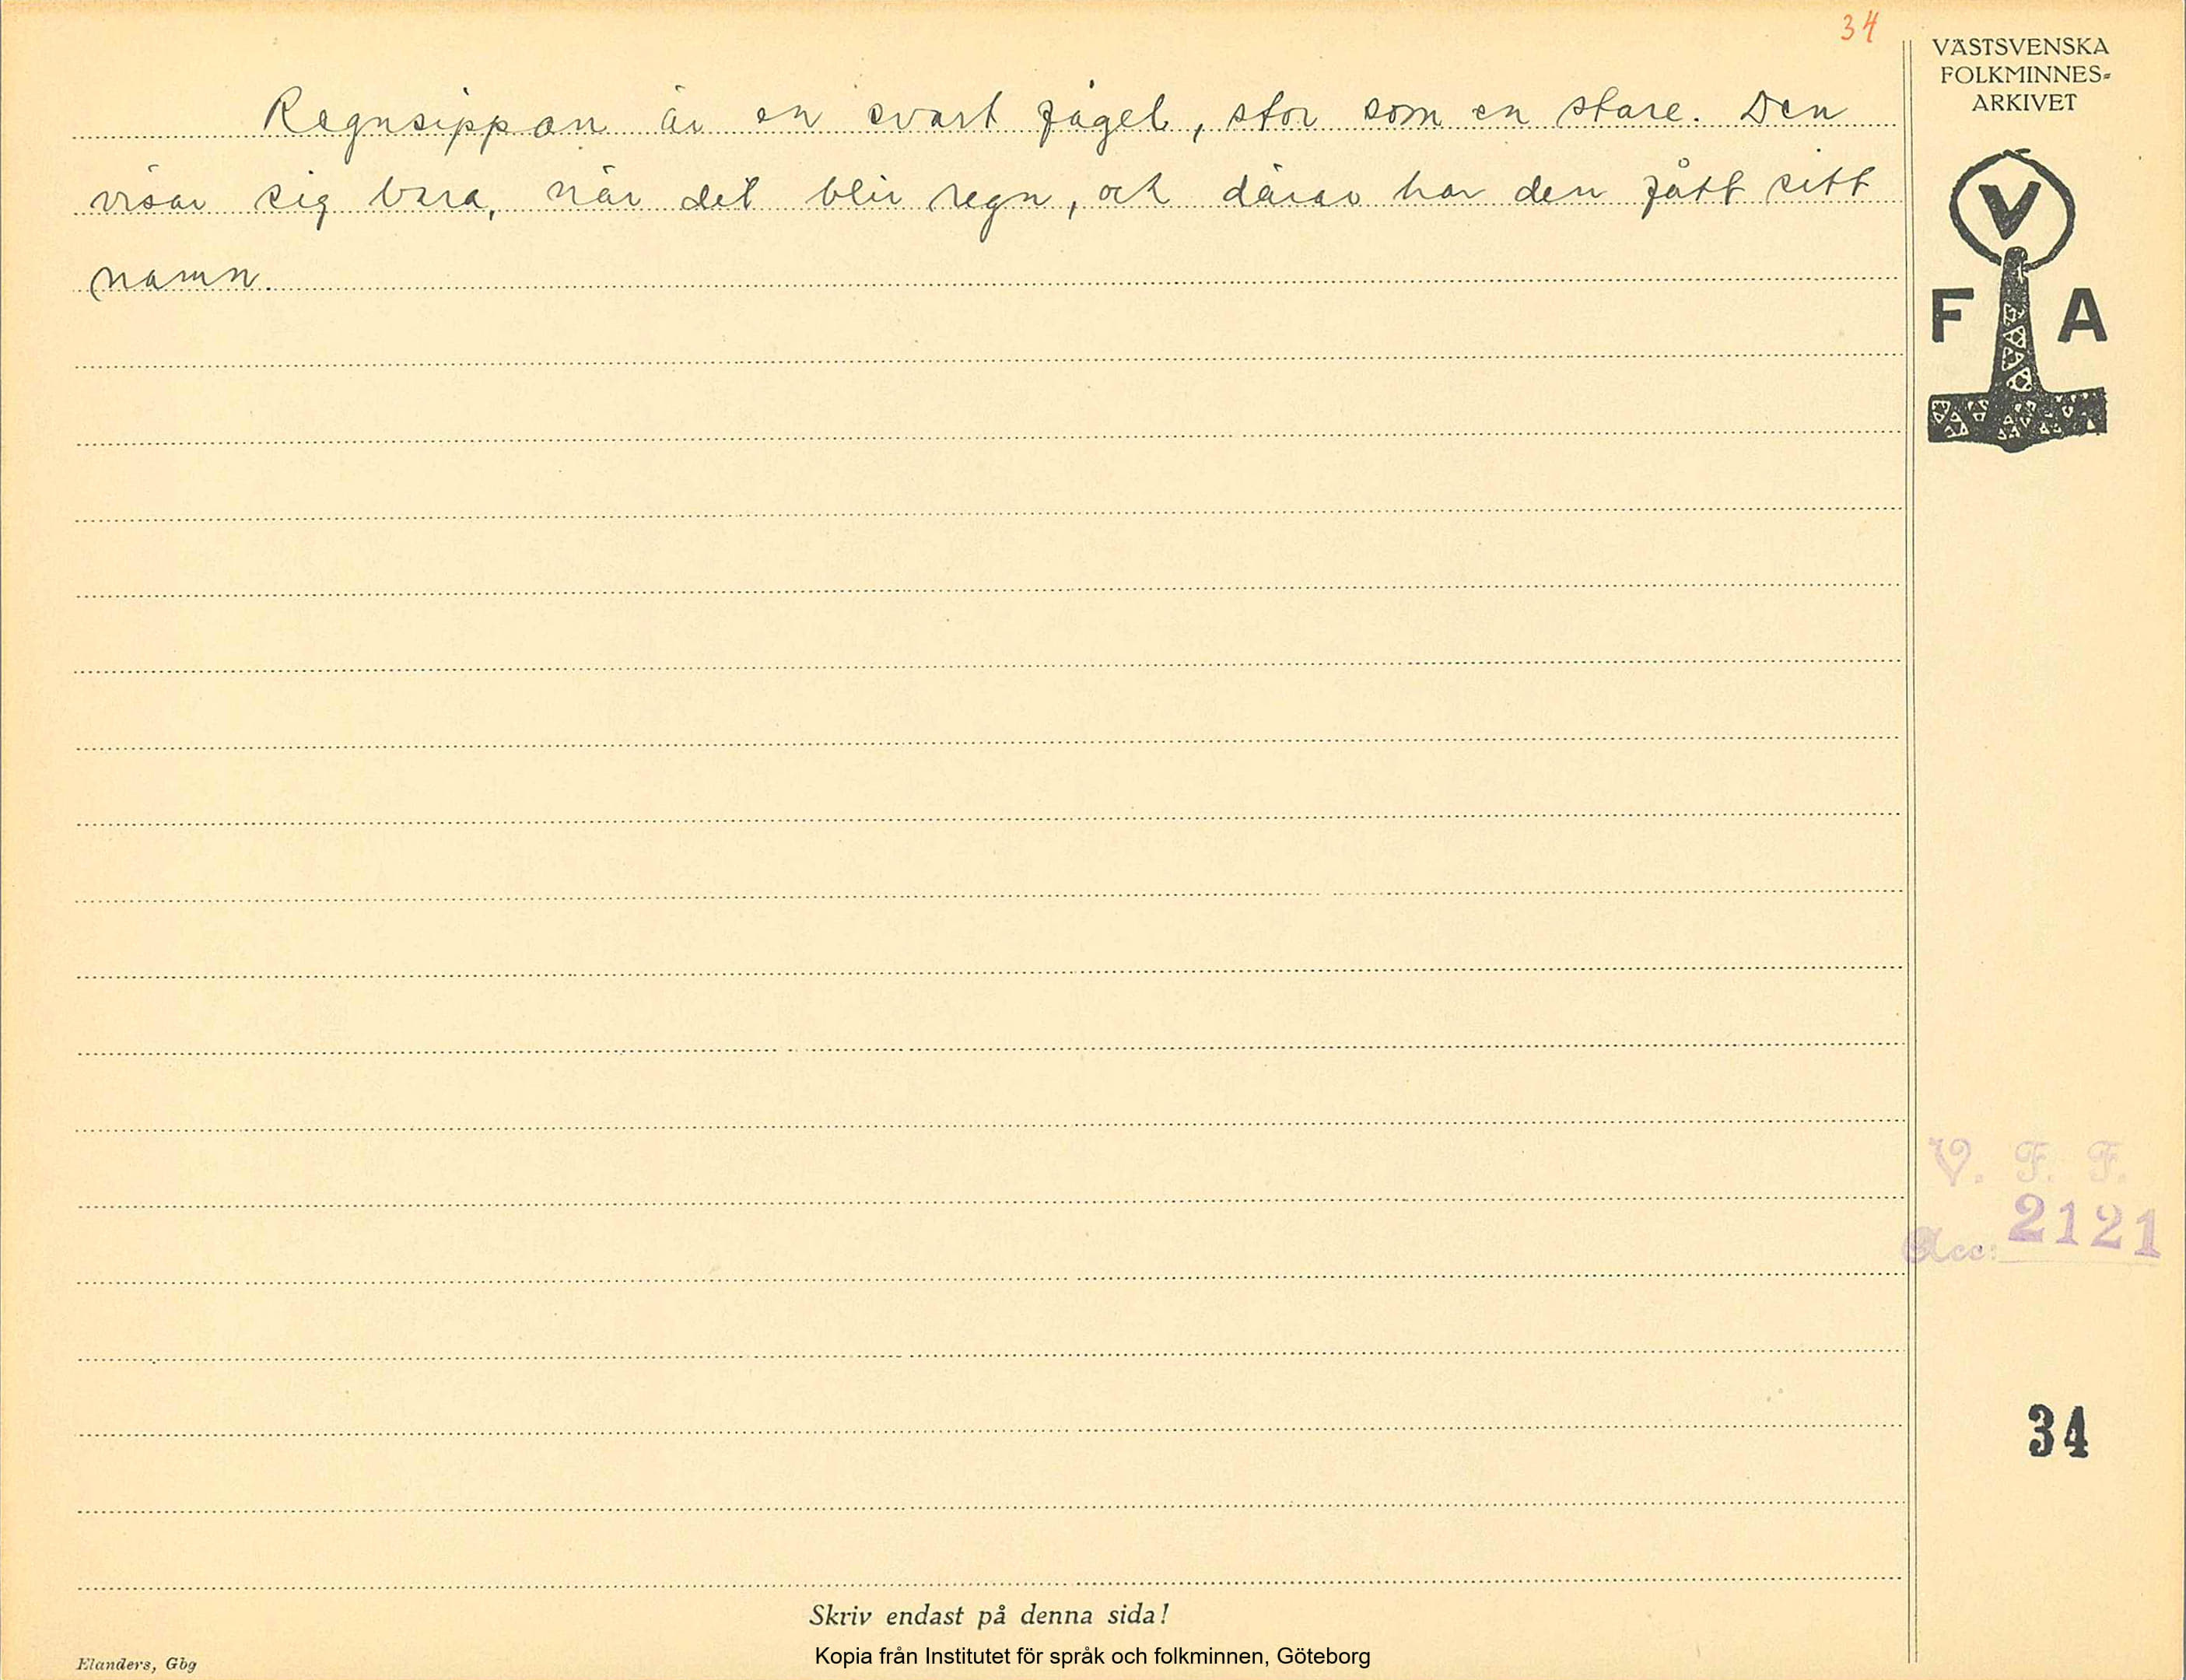 34
Regnsippan är en svart fågel, stor som en stare. Den
visar sig bara, när det blir regn, och därav har den fått sitt
namn.
VÄSTSVENSKA
FOLKMINNES-
ARKIVET
V
F A
V. F. F.
Acc: 2121
34
Skriv endast på denna sida!
Kopia från Institutet för språk och folkminnen, Göteborg
Elanders, Gbg